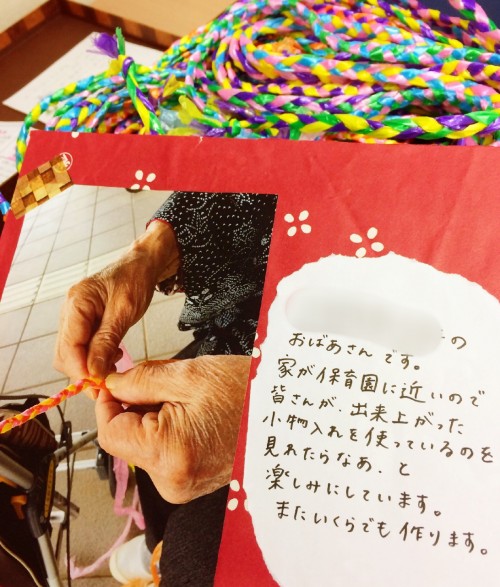 の
おばあさんです。
家が保育園に近いので
皆さんが、出来上がった
小物入れを使っているのを
見れたらなあ、と
楽しみにしています。
またいくらでも作ります。